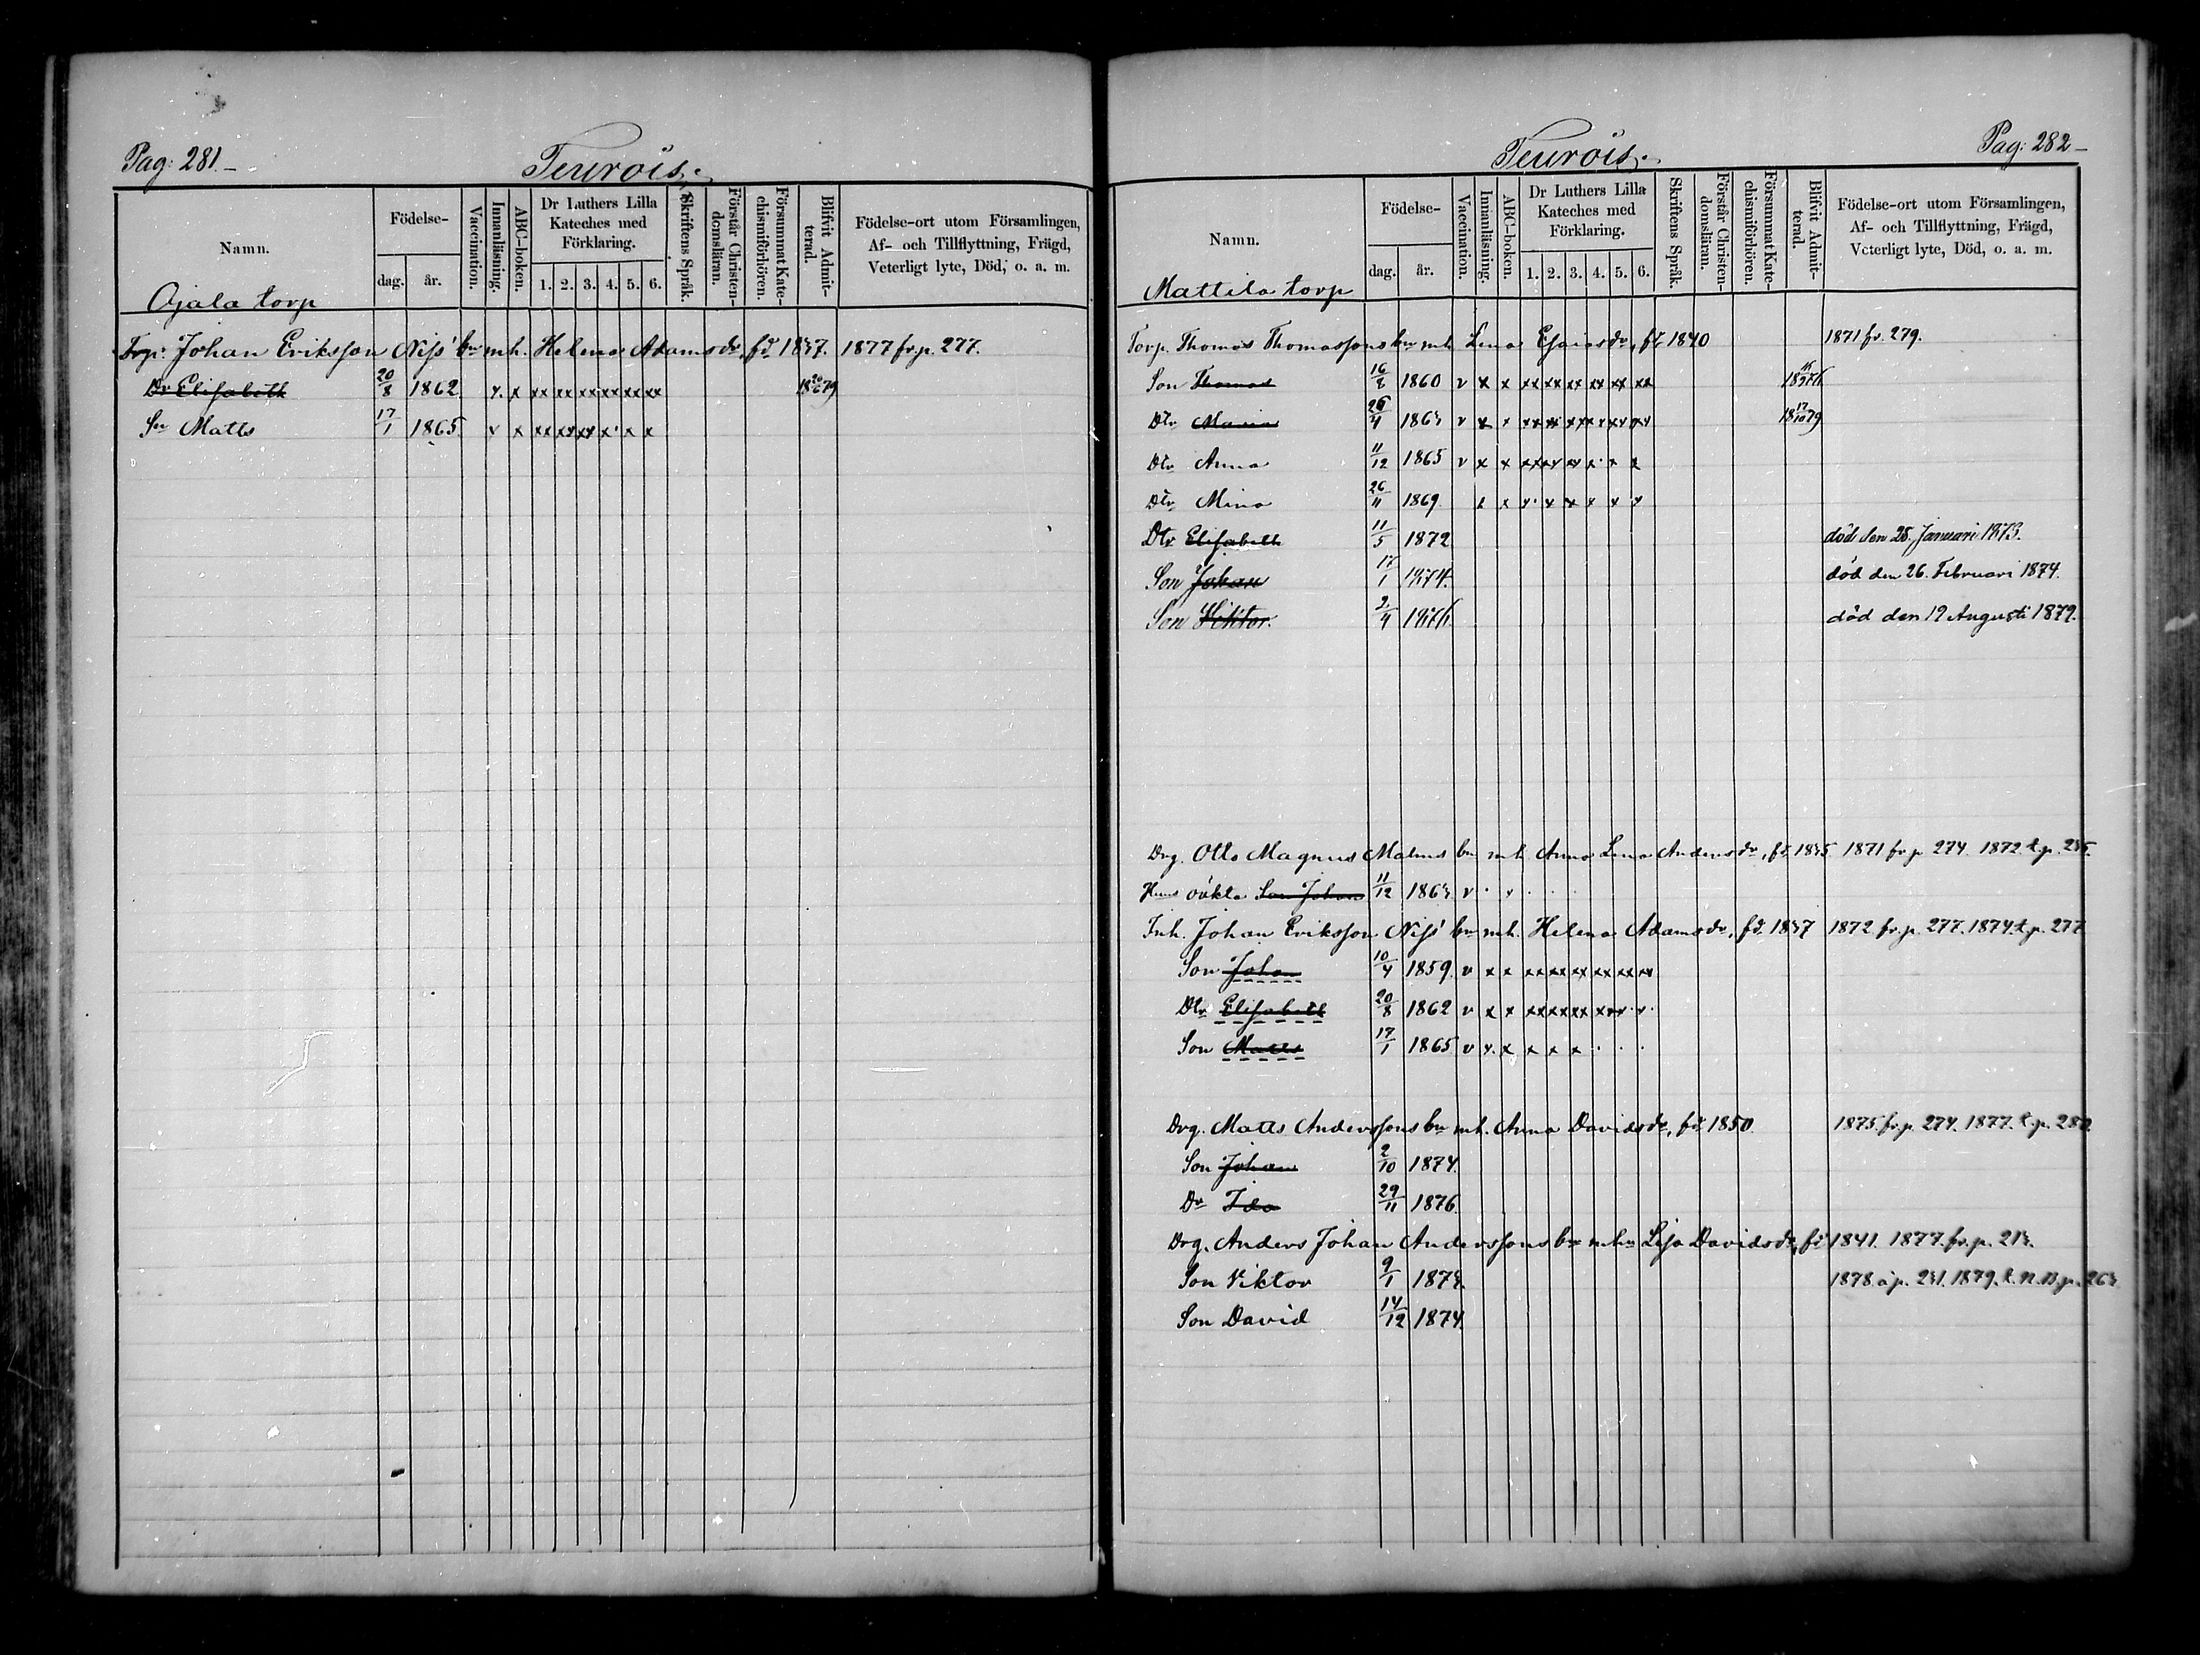 Pag: 281.
Teurois.
Namn.
Födelse-
dag.
år.
Vaccination.
Innanläsning.
ABC-boken.
Dr Luthers Lilla Kateches med Förklaring.
1. 2. 3. 4. 5. 6.
Skriftens Språk.
Förstår Christen-domsläran.
Försummat Kate-chismiförhören.
Blifvit Admit-terad.
Födelse-ort utom Församlingen,
Af- och Tillflyttning, Frägd,
Veterligt lyte, Död, o. a. m.
Ojala torp
Torp. Johan Eriksson Nijs' br mh. Helena Adamsdr, fd 1837. 1877 fr p. 277.
Dr Elisabeth 20/8 1862 v. x xx xx xx xx xx xx
Sn Matts 17/1 1865 v x xx xx xx x x x
Pag: 282
Teurois.
Namn.
Födelse-
dag.
år.
Vaccination.
Innanläsning.
ABC-boken.
Dr Luthers Lilla Kateches med Förklaring.
1. 2. 3. 4. 5. 6.
Skriftens Språk.
Förstår Christen-domsläran.
Försummat Kate-chismiförhören.
Blifvit Admit-terad.
Födelse-ort utom Församlingen,
Af- och Tillflyttning, Frägd,
Veterligt lyte, Död, o. a. m.
Mattila torp
Torp. Thomas Thomassons br mh Lena Esaiasdr, fd 1840 1871 fr. 279.
Son Thomas 16/8 1860 v x x xx xx xx xx xx xx
Dtr Maria 26/4 1863 v x x xx xx xx xx xx xx 18 17/10 79
Dtr Anna 11/12 1865 v x x xx xx xx x x x
Dtr Mina 26/11 1869 x x x x x x x x
Dtr Elisabeth 11/5 1872 död den 28. Januari 1873.
Son Johan 17/1 1874. död den 26. Februari 1874.
Son Viktor. 2/4 1876. död den 19 Augusti 1879.
Drg. Otto Magnus Malms br mh Anna Lena Andersdr, fd 1835 1871 fr p 274. 1872. t. p.
Hens oäkta Son Johan 11/12 1863 v
Inh. Johan Eriksson Nijs' br mh. Helena Adamsdr, fd. 1837 1872 fr. p. 277. 1874 t. p. 277
Son Johan 10/4 1859 v x x xx xx xx xx xx xx
Dtr Elisabeth 20/8 1862 v x x xx xx xx xx x x
Son Matts 17/1 1865 v v. x x x x
Drg. Matts Anderssons br mh. Anna Davidsdr, fd 1850. 1875. fr. p. 274. 1877. t. p.
Son Johan 2/10 1874.
Dr Ida 29/11 1876.
Drg. Anders Johan Anderssons br mhu Lisa Davidsdr, fd 1841. 1877. fr. p. 213.
Son Viktor 9/1 1873. 1878. å p. 231. 1879. t. N. B. p. 263
Son David 14/12 1874.